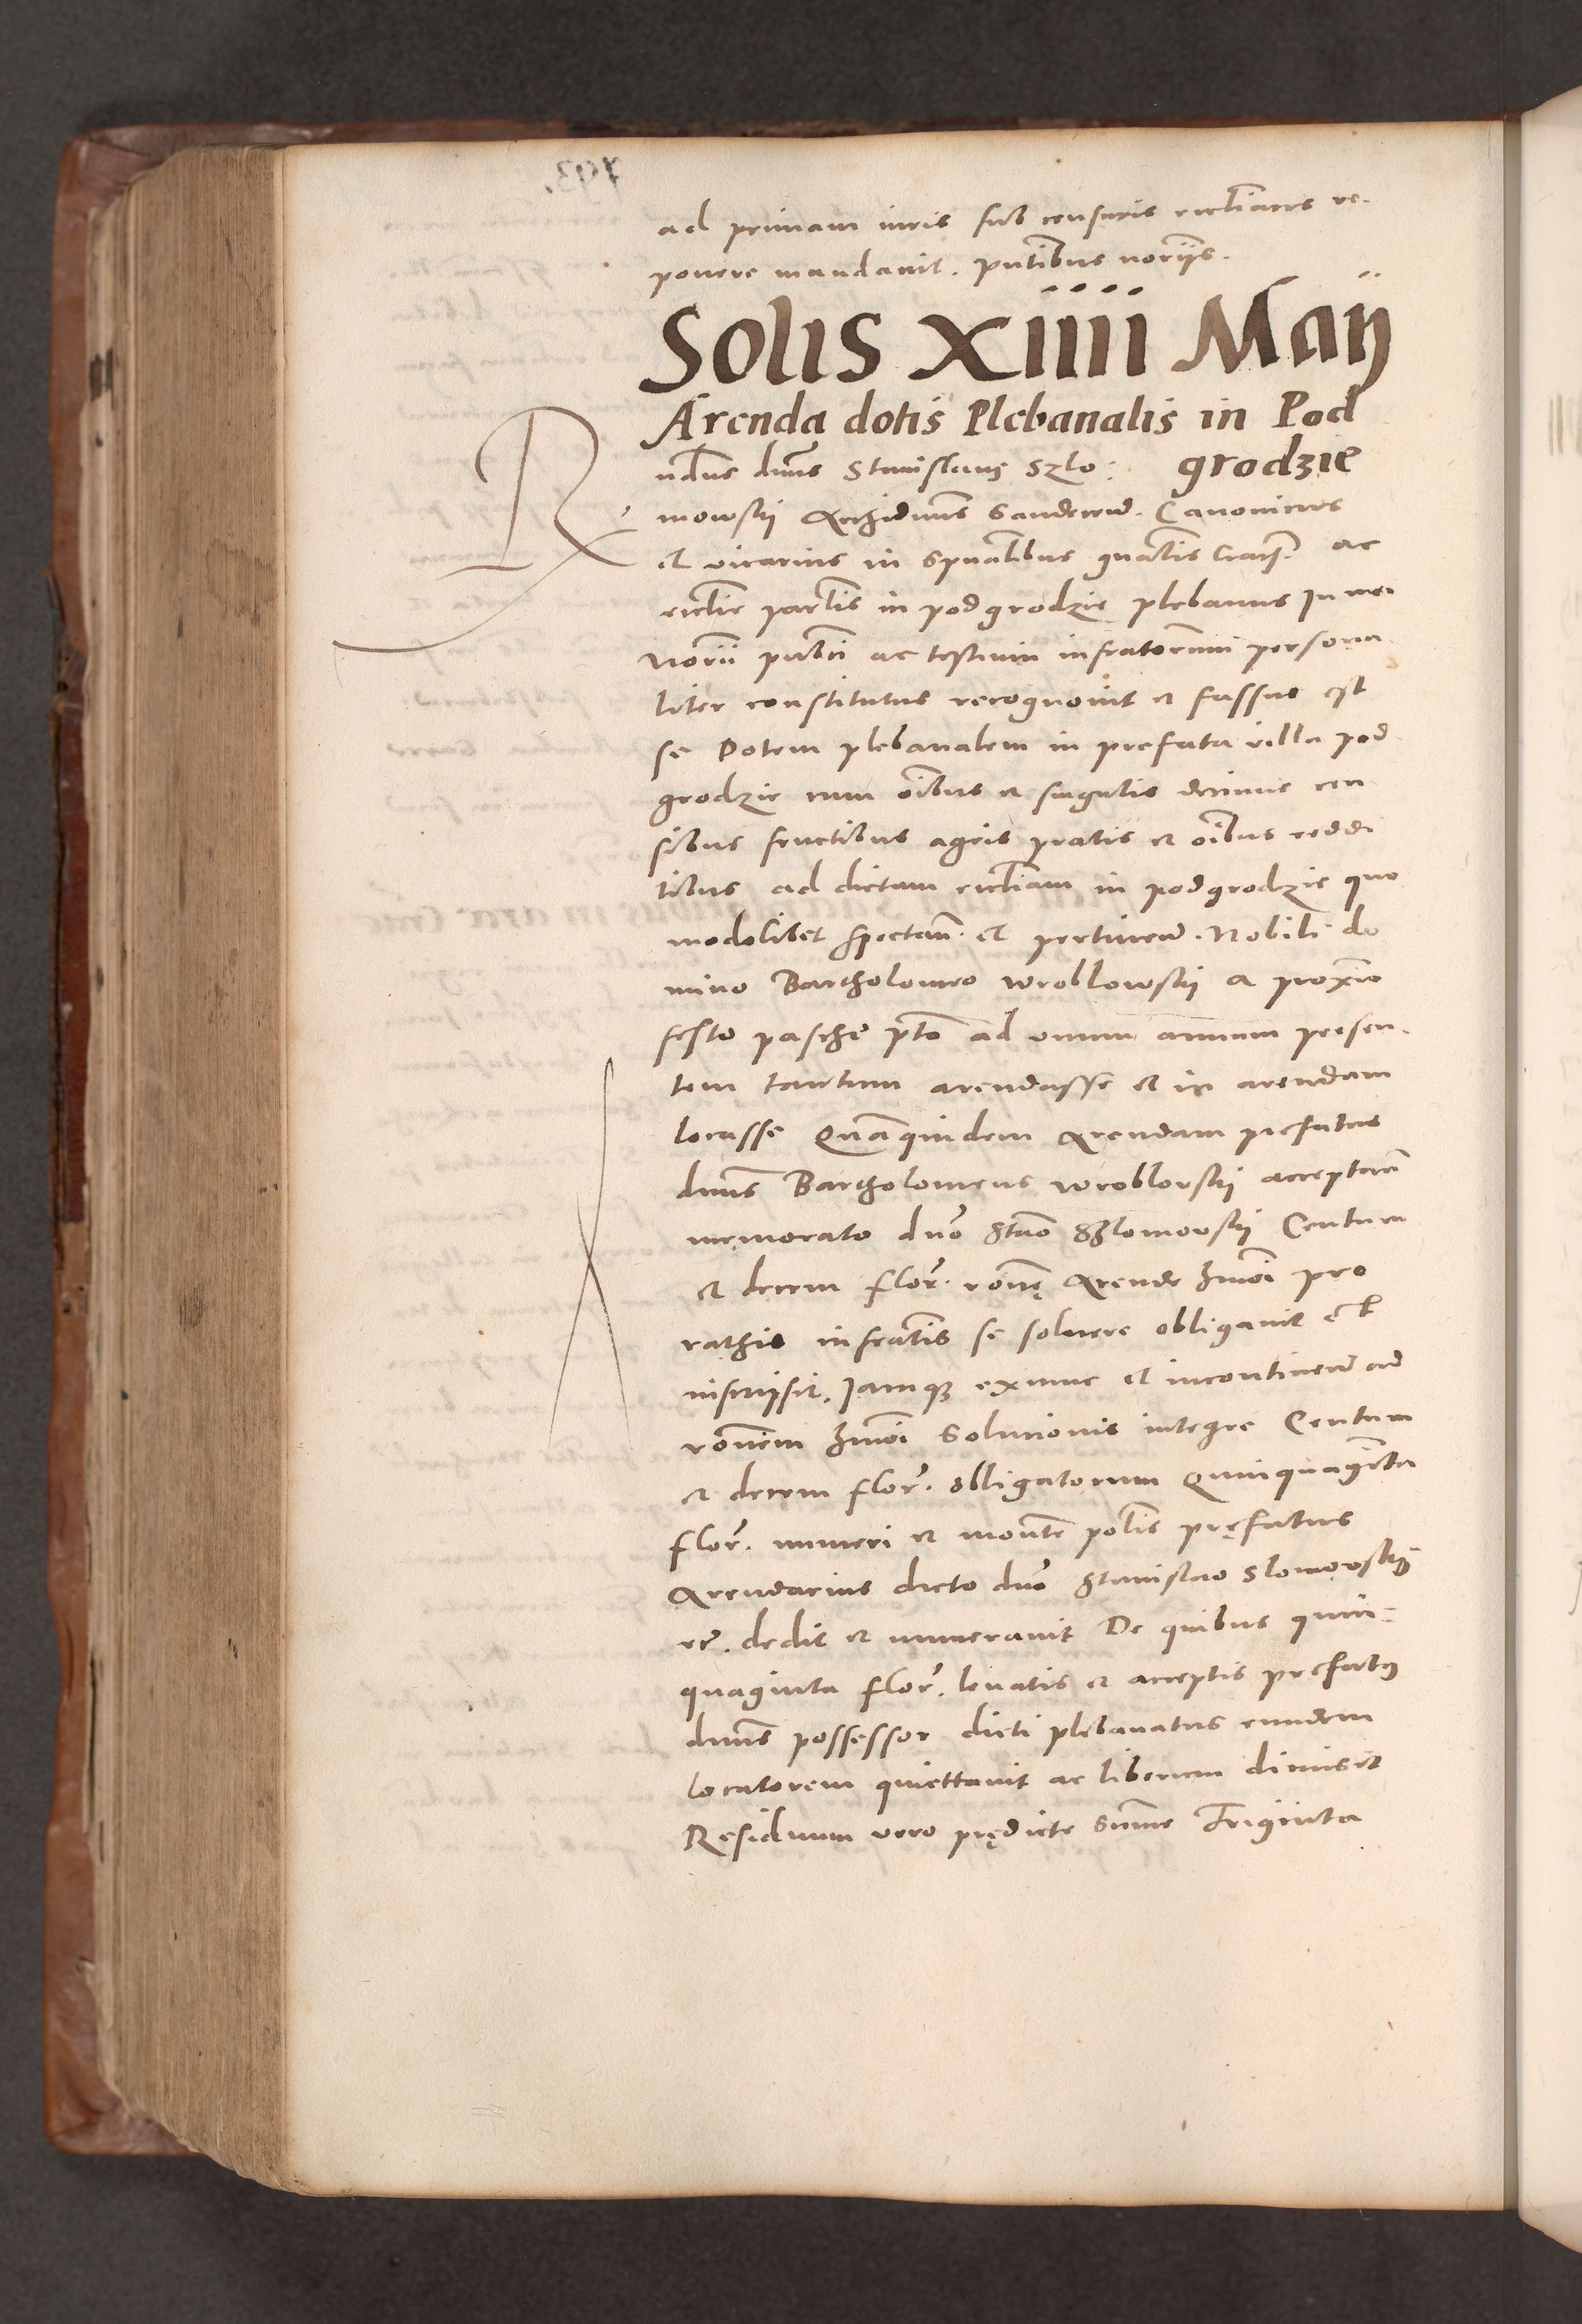 ad primam iuris sub censuris eccliacis re-
ponere mandavit. pntibus noriis.
Solis XIIII Maij
Arenda dotis Plebanalis in Pod
grodzie
Rndus dnus Stanislaus Szlo:
mowskij Archidnus Sandecen. Canonicus
et vicarius in spualibus gnalis Crac. ac
ecclie parlis in podgrodzie plebanus in mei
Norii publi ac testium infratorum persona
liter constitutus recognovit et fassus est
se Dotem plebanalem in prefata villa pod
grodzie cum oibus et singulis decimis cen
sibus fructibus agris pratis et oibus reddi
tibus ad dictam eccliam in podgrodzie quo
modolibet spectan. et pertinen. Nobili do
mino Bartholomeo Wroblowskij a proximo
festo pasche pto ad unum annum presen-
tem tantum arendasse et in arendam
locasse Quamquidem Arendam prefatus
dnus Bartholomeus Wroblovskij acceptan
memorato dno Stano Szlomovskij Centum
et decem flor. rone Arende hmoi pro
rathis infratis se solvere obligavit et
inscripsit. Jamque exnunc et incontinen ad
ronem hmoi Solucionis integre Centum
et decem flor. obligatorum Quinquaginta
flor. numeri et monte polis prefatus
Arendarius dicto dno Stanislao Slomovskij
re. dedit et numeravit De quibus quin-
quaginta flor. levatis et acceptis prefatus
dnus possessor dicti plebanatus eundem
locatorem quiettavit ac liberum dimisit
Residuum vero predicte summe Triginta